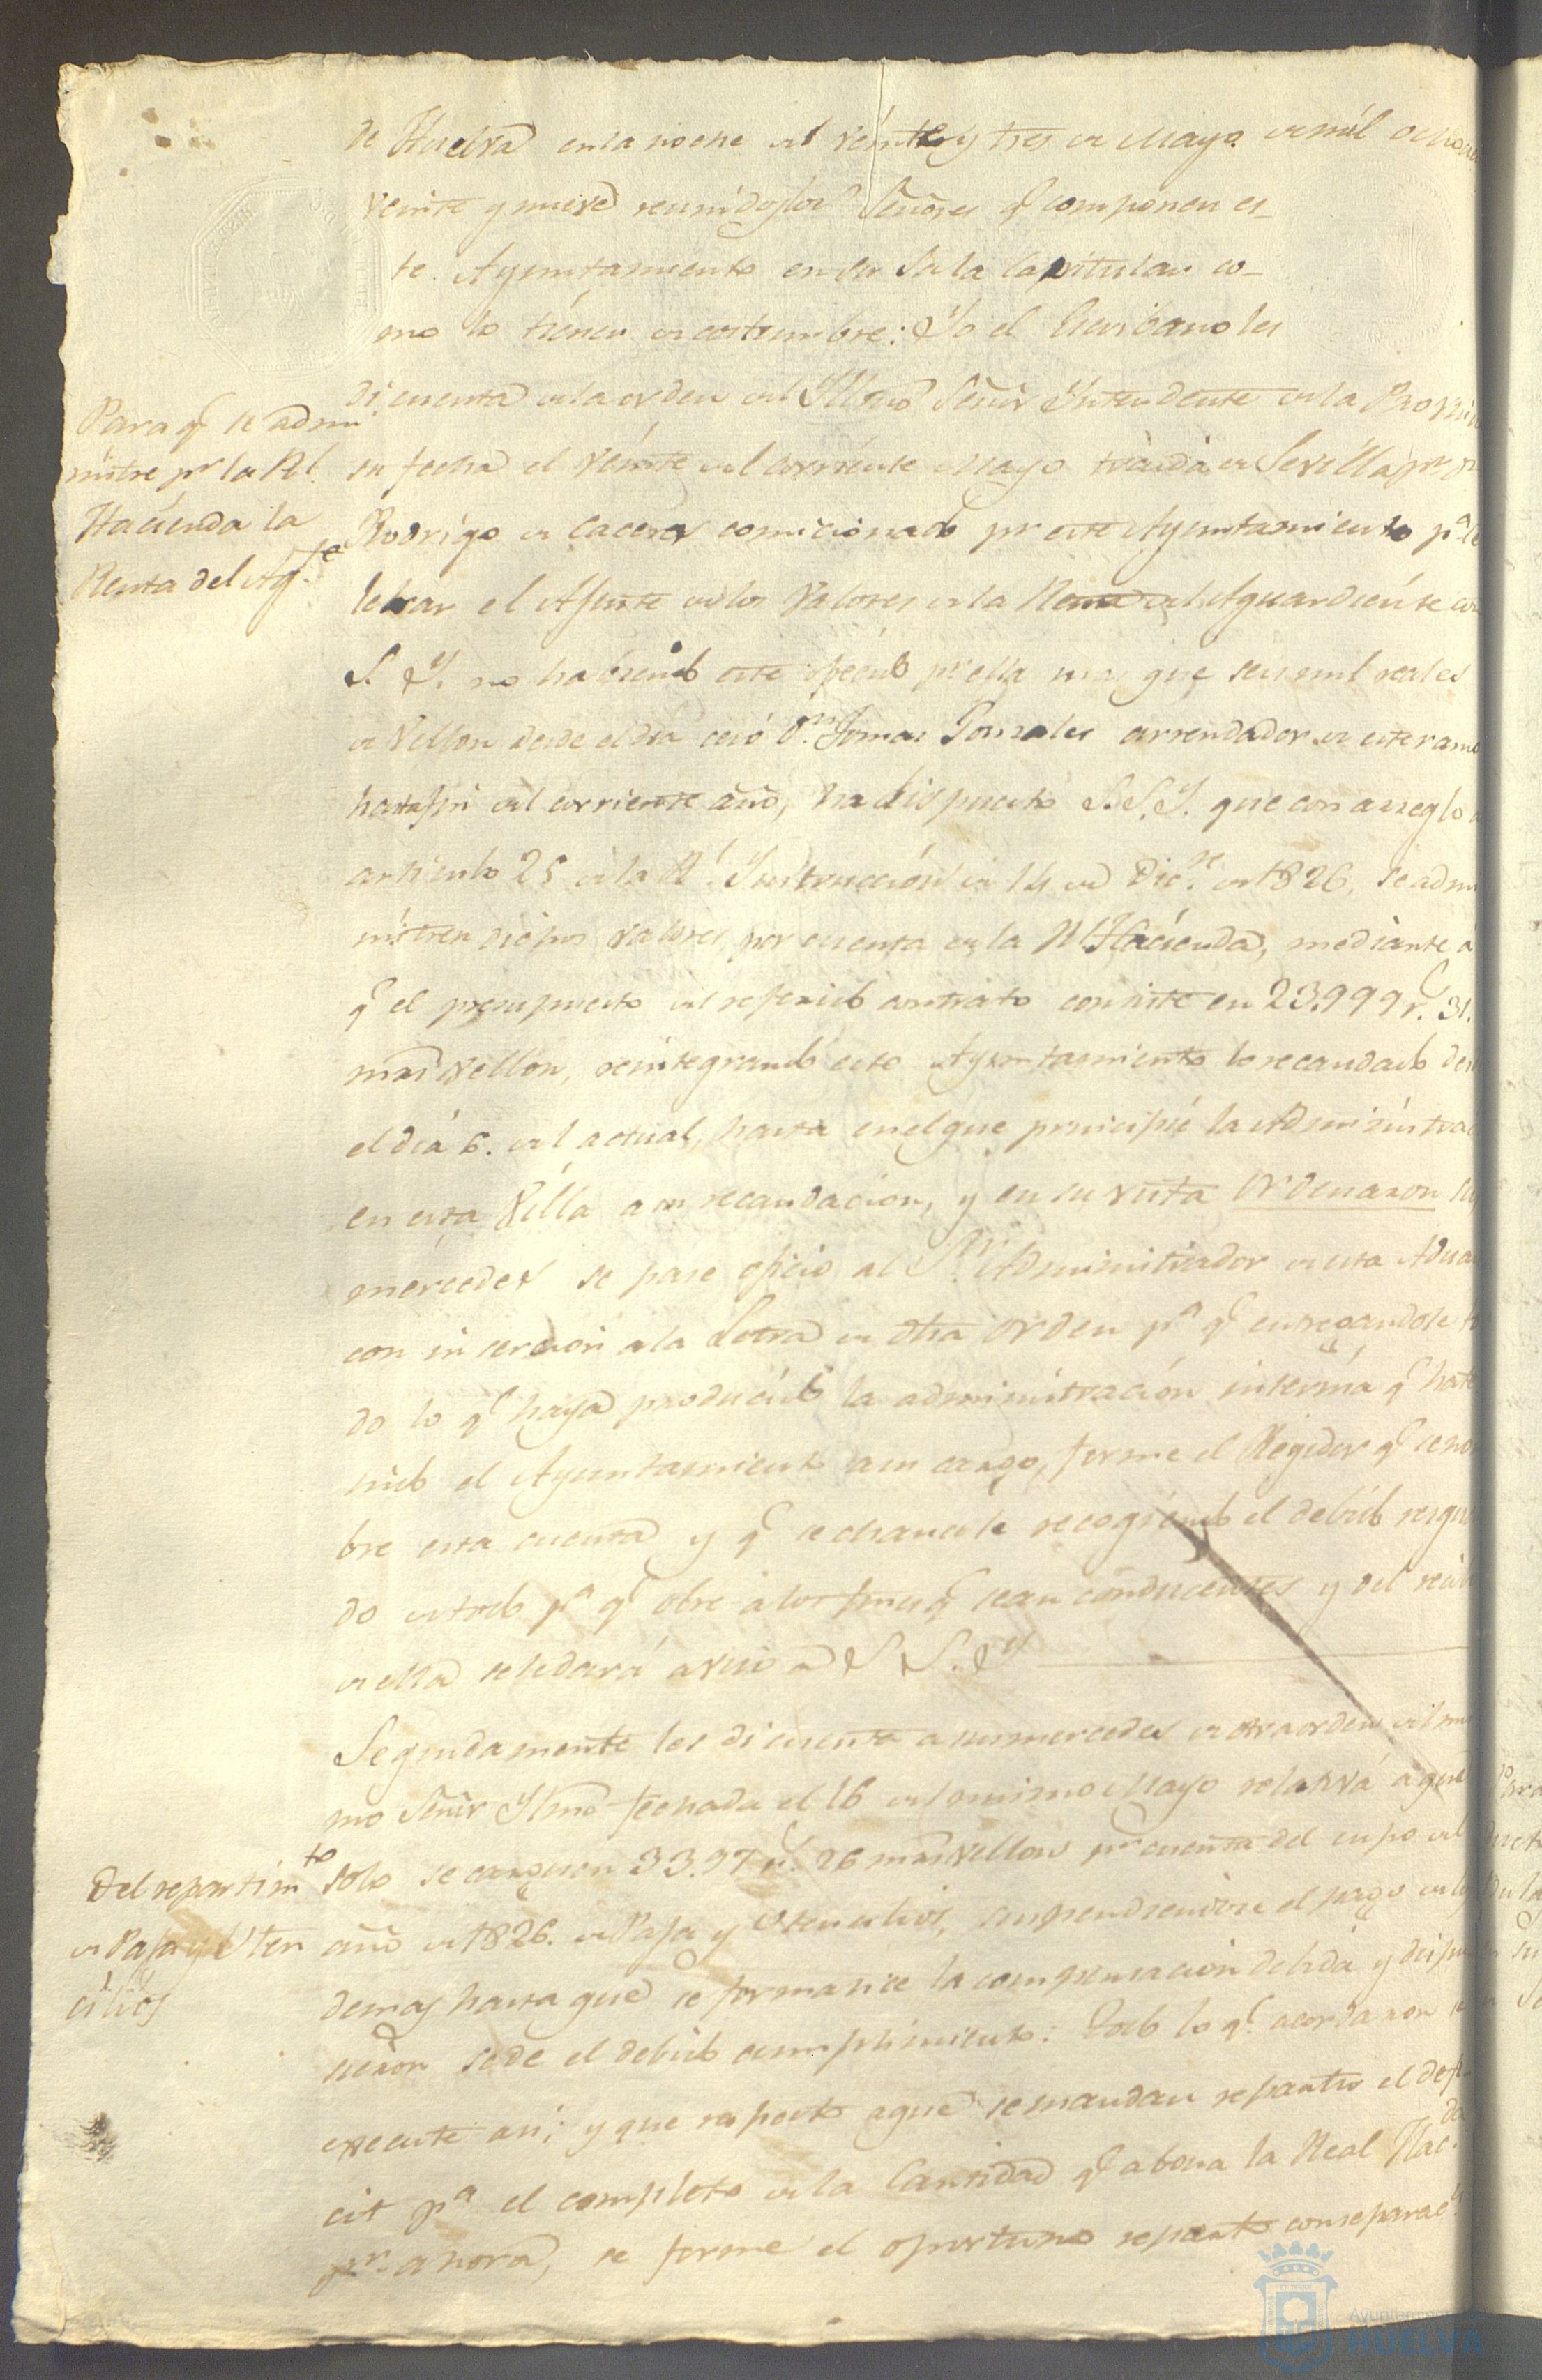 de Huelva en la noche del veinte y tres de Mayo de mil ochoci
veinte y nueve reunidos los Señores q.e componen es-
te Ayuntamiento en su Sala Capitular co-
mo lo tienen de costumbre: Yo el Escribano les
di cuenta de la orden del Yllmo Señor Yntendente de la Provin
Para q.e se admi
nistre p.r la Rl.
Hacienda la
Renta del Ag.te
su fecha el veinte del corriente Mayo traida de Sevilla p.r
Rodrigo de Caceres comicionado p.r este Ayuntamiento p.a ce
lebrar el Asiente de los Valores de la Renta del Aguardiente con
S. Y. no habiendo este ofrecido p.r ella mas que seis mil reales
de Vellon desde el dia cesó D.n Tomas Gonzales arrendador de este ramo
hasta fin del corriente año, ha dispuesto S.S.Y. que con arreglo a
articulo 25 de la Rl. Ynstruccion de 14 de Dic.re de 1826, se admi
nistren dichos valores por cuenta de la Rl Hacienda, mediante a
q.e el presupuesto del referido contrato consiste en 23.999 r.s 31.
mrs vellon, reintegrando este Ayuntamiento lo recaudado des
el dia 6. del actual, hasta en el que principie la Administrac
en esta Villa a su recaudacion, y en su vista Ordenaron su
mercedes se pase oficio al S.or Administrador de esta Adua
con insercion a la Letra de dha orden p.a q.e entregandole to
do lo q.e haya producido la administracion interina q.e ha te
nido el Ayuntamiento a su cargo, forme el Regidor q.e se no
bre esta cuenta y q.e se chancele recogiendo el debido resgu
do de todo p.a q.e obre a los fines q.e sean conducentes y del recivo
de ella se le dará aviso a S. S. Y.
Segundamente les di cuenta a sus mercedes de otra orden del mis
mo Señor Yllmo fechada el 16 del mismo Mayo relativa a que
Del repartim.to
de Paja y Uten
cilios
solo se carguen 33.97 r.s 26 mrs vellon p.r cuenta del cupo del
año de 1826. de Paja y Utencilios, suspendiendose el pago de los
demas hasta que se formalice la compensacion debida y dispu
sieron se de el debido cumplimiento: Todo lo q.e acordaron se
execute asi; y que respecto a que se mandan repartir el defi
cit p.a el completo de la Cantidad q.e abona la Real Hac.da
p.r ahora, se forme el oportuno reparto con separac.n
Ayuntamiento
HUELVA